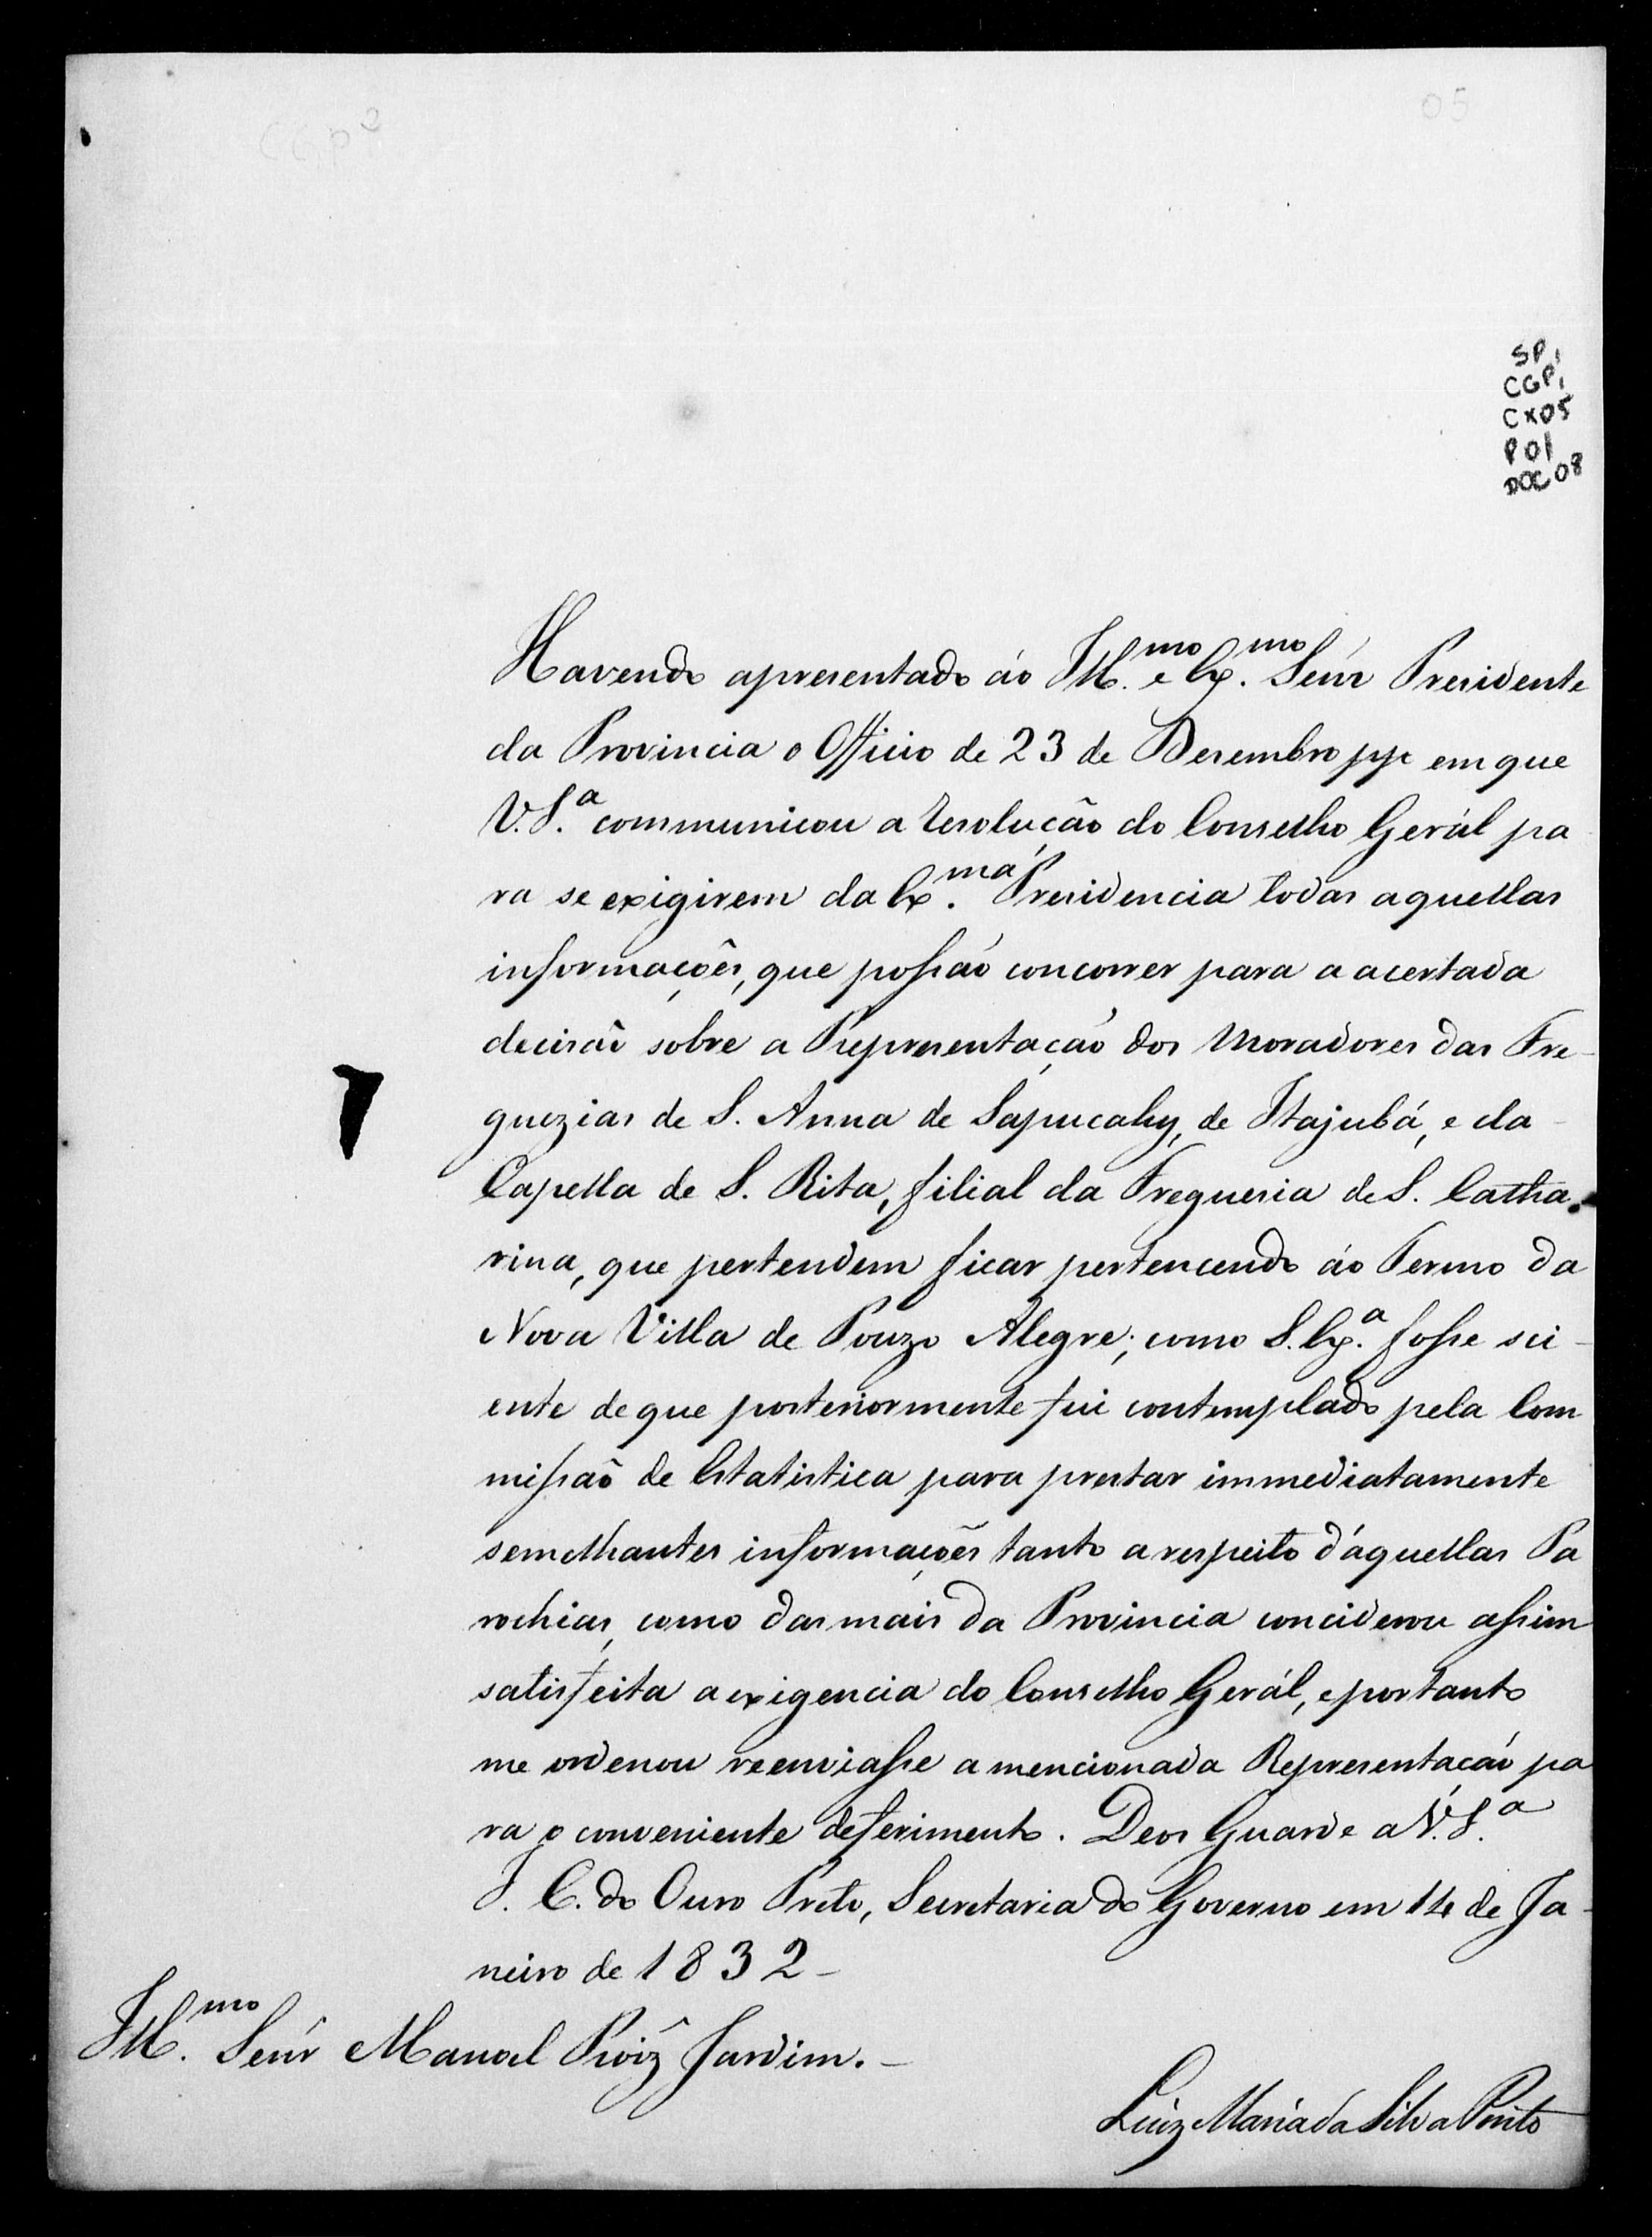 CGP²
05
SP,
CGP,
CX05
P01
DOC 08
Havendo apresentado áo Ill.mo e Ex.mo Senr Presidente
da Provincia o Officio de 23 de Desembro pp em que
V.S.a communicou a resolução do Conselho Gerál pa
ra se exigirem da Ex.ma Presidencia todas aquellas
informações, que possão concorrer para a acertada
decisão sobre a Representação dos Moradores das Fre-
guezias de S. Anna de Sapucahy, de Itajubá, e da
Capella de S. Rita, filial da Freguesia de S. Catha
rina, que pertendem ficar pertencendo áo Termo da
Nova Villa de Pouzo Alegre; como S. Ex.a fosse sci-
ente de que posteriormente fui contemplado pela Com
missão de Estatistica para prestar immediatamente
semelhantes informações tanto a respeito d'áquellas Pa
rochias, como das máis da Provincia conciderou assim
satisfeita a exigencia do Conselho Gerál, e portanto
me ordenou reenviasse a mencionada Representação pa
ra o conveniente deferimento. Deos Guarde a V.S.a
I. C. do Ouro Preto, Secretaria do Governo em 14 de Ja-
neiro de 1832-
Ill.mo Senr Manoel Roiz Jardim.-
Luiz Maria da Silva Pinto